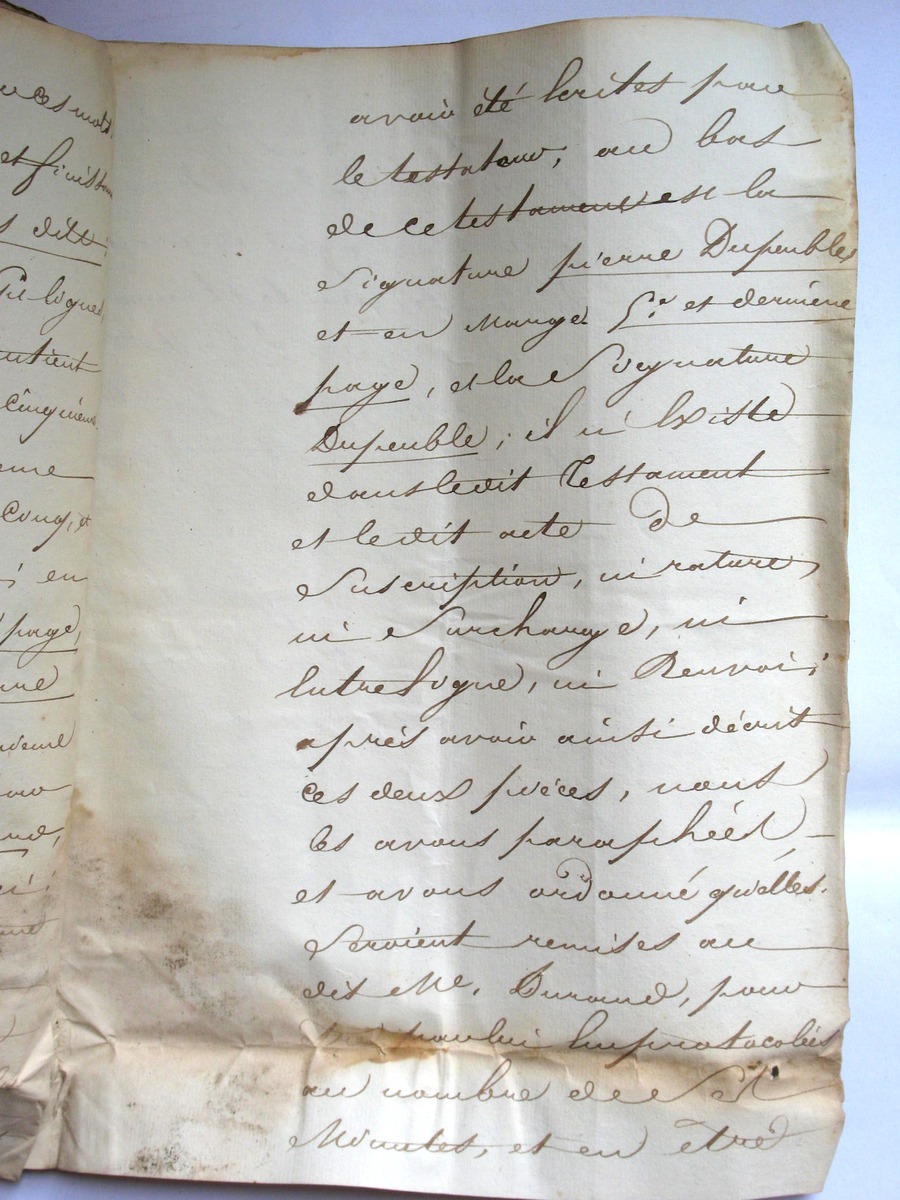 u ces mots
et finissan
s dite
Six lignes
ntient
Cinquième
Cinq, et
; en
page,
avoir été Écrites par
le testateur, au bas
de ce testament est la
Signature pierre Dupeuble,
et en Marge 5.e et derniere
page, et la Signature
Dupeuble; il n'Existe
dans ledit Testament
et ledit acte de
Suscription, ni rature,
ni Surcharge, ni
Entreligne, ni Renvoi;
après avoir ainsi décrit
ces deux pièces, nous
les avons paraphées
et avons ordonné qu'elles
Seroient remises au
dit Me. Durand, pour
par lui Emprotocolées
au nombre de Ses
Minutes, et en être